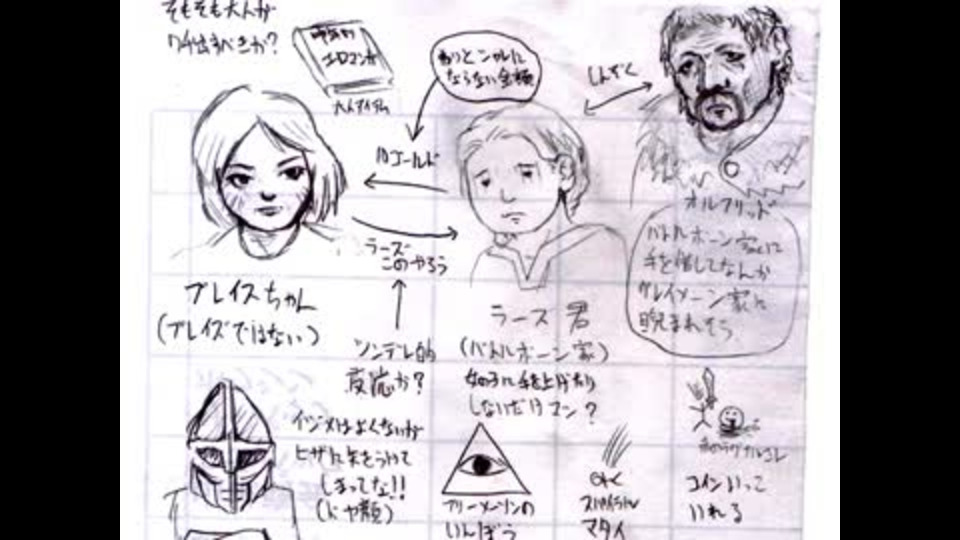 そもそも大人が
口出すべきか?
エロマンガ
大人アイテム
わりとシャレに
ならない金額
しんぞく
10ゴールド
ラーズ
このやろう
オルフリッド
バトルボーン家に
手を貸してなんか
グレイメーン家に
睨まれそう
ブレイスちゃん
(ブレイズではない)
ツンデレ的
反応か?
ラース君
(バトルボーン家)
女の子に手を上げたり
しないだけマシ?
イジメはよくないが
ヒザに矢をうけて
しまってな!!
(ドヤ顔)
フリーメーソンの
いんぼう
マタイ
コインいって
いれる